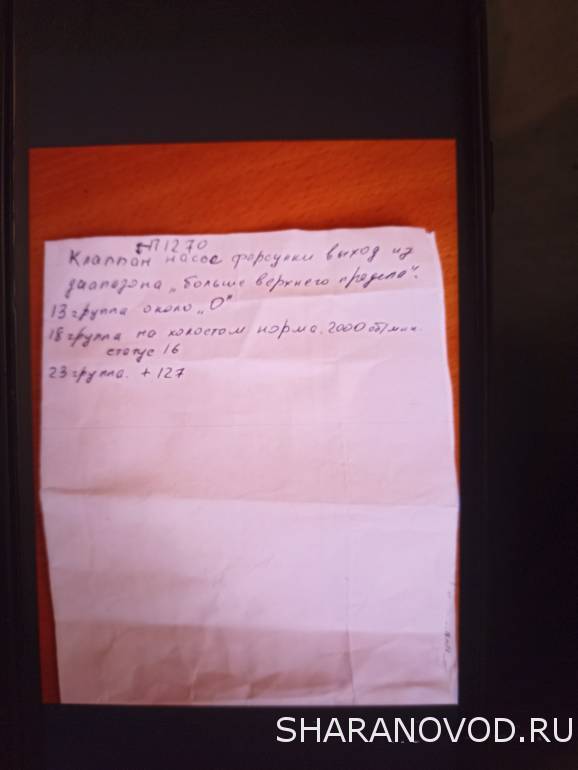 П1270
Клаппан насос форсунки выход из
диапазона „больше верхнего предела".
13 группа около „О"
18 группа на холостом норма. 2000 об/мин.
статус 16
23 группа. + 127
SHARANOVOD.RU